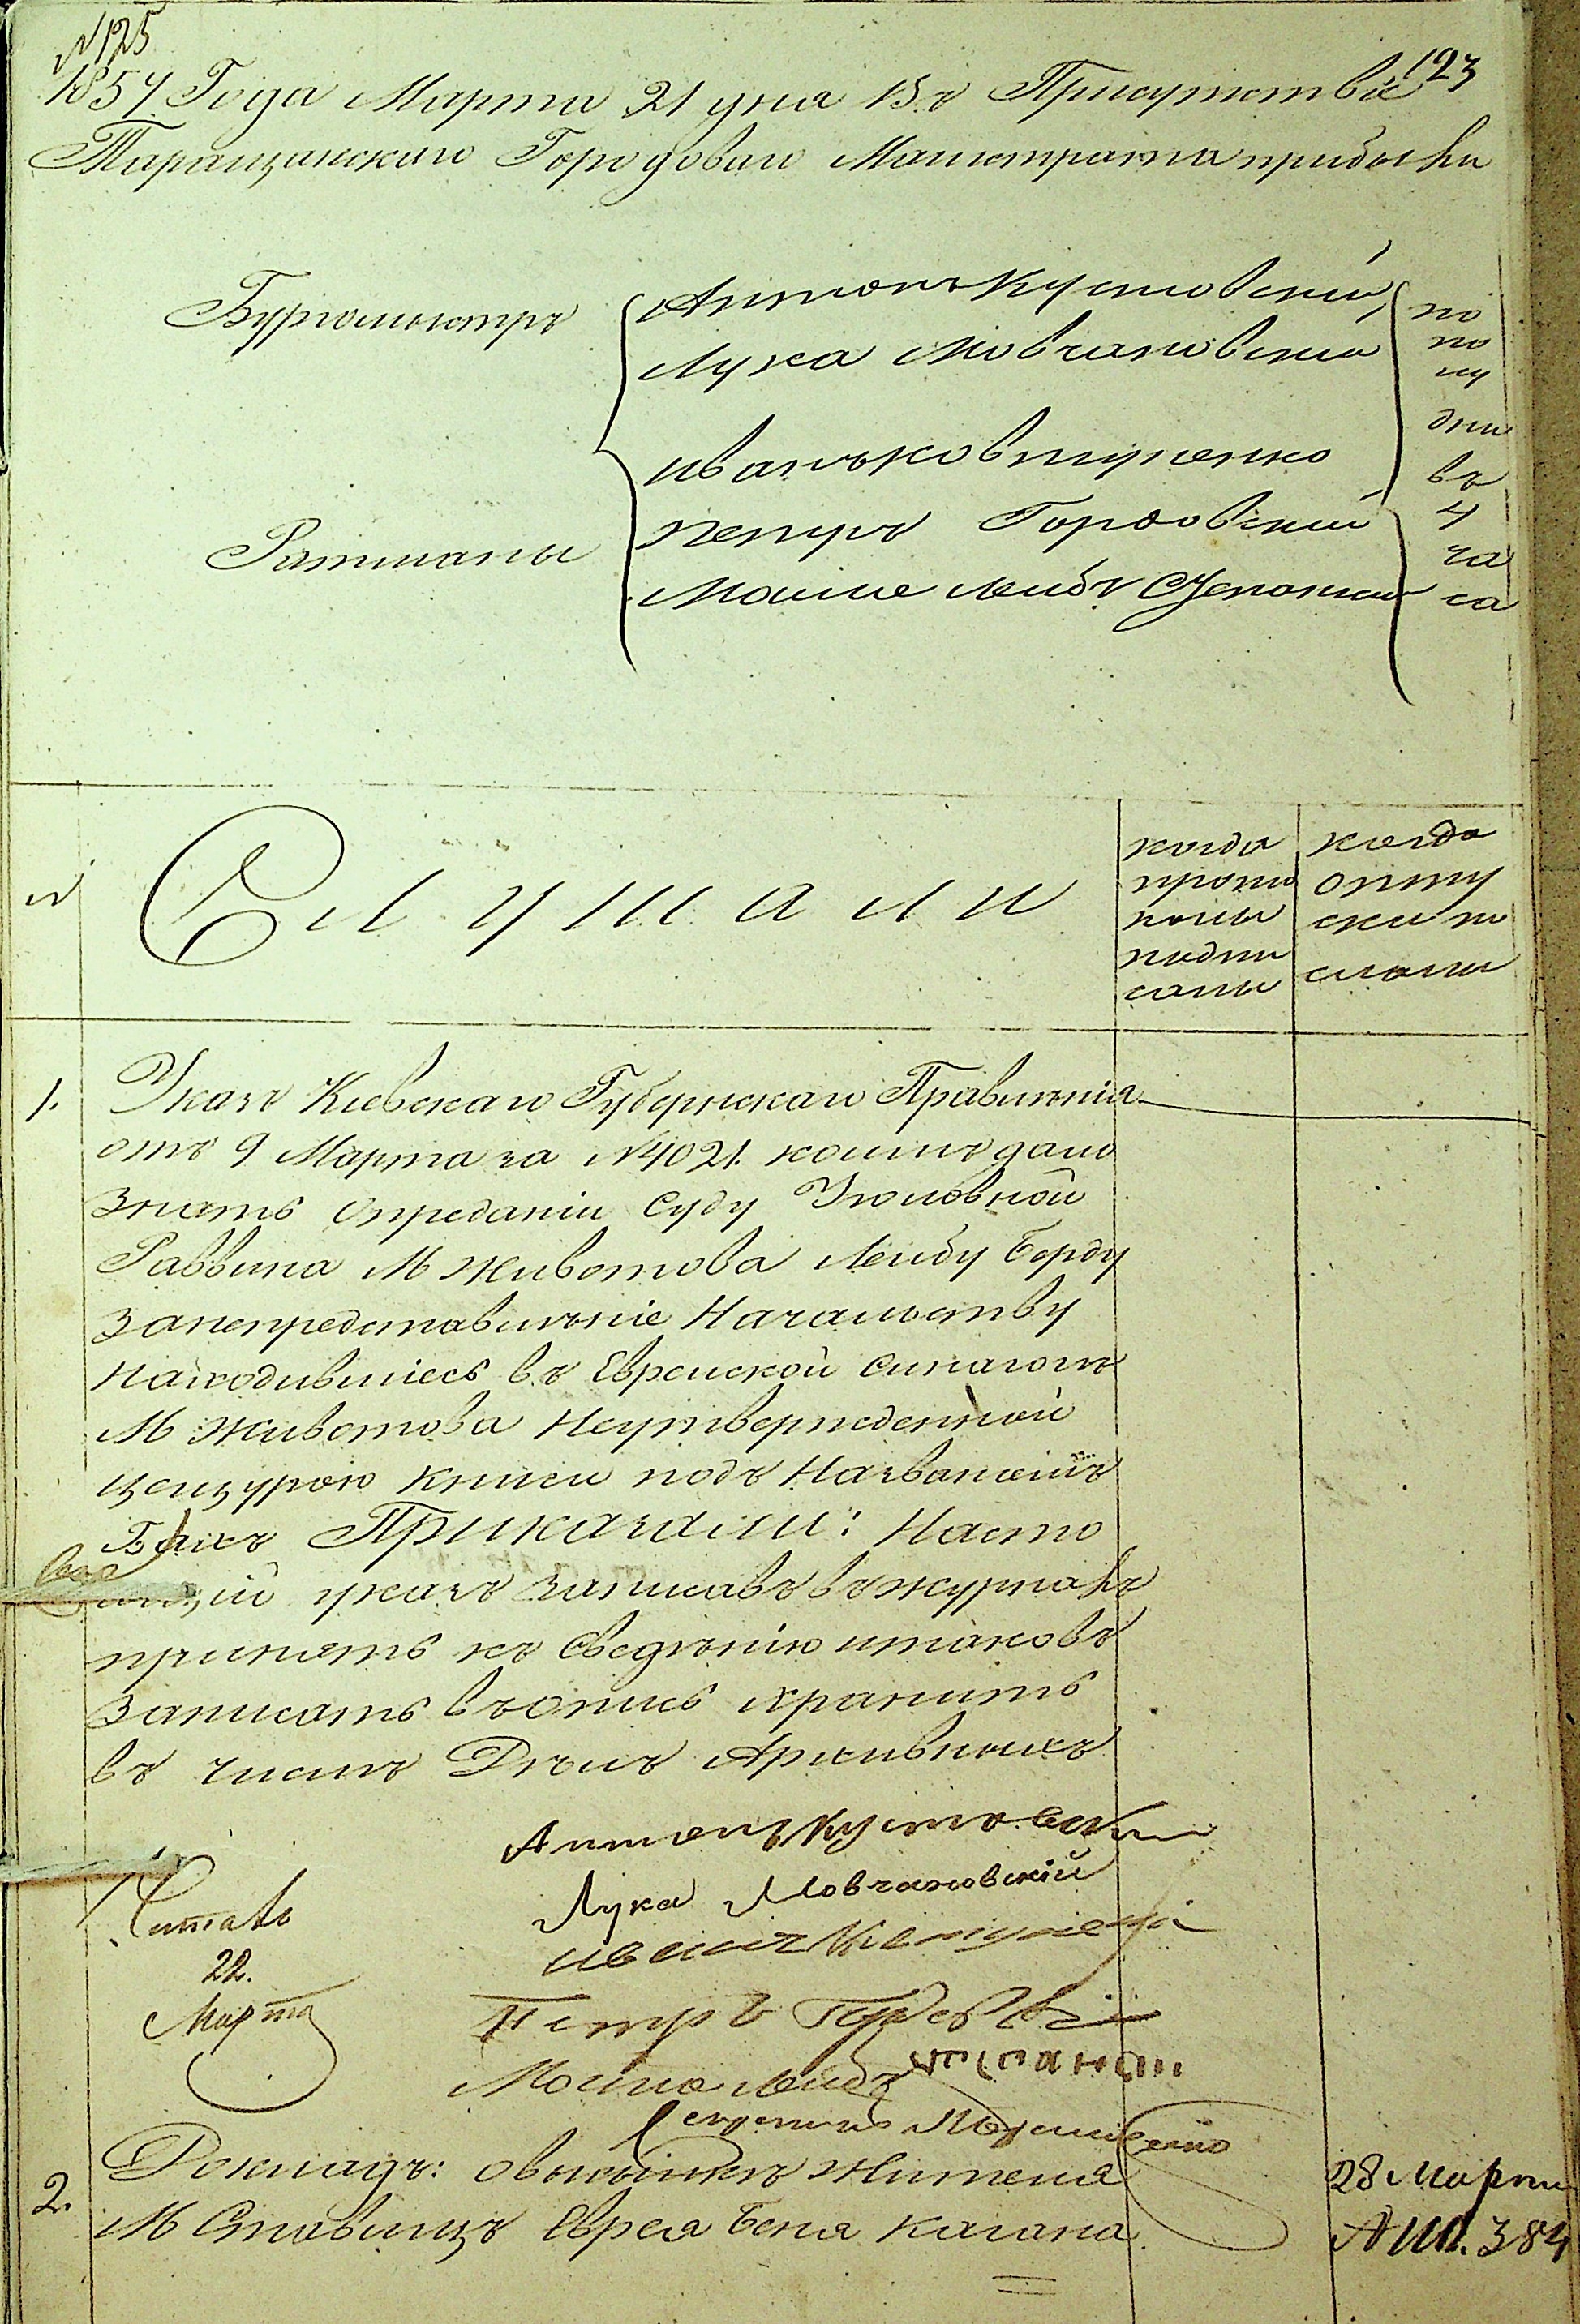 № 125
123
1857 Года Марта 21 дня Въ Присутствіе
Таращанскаго Городоваго Магистрата прибыли
Бургомистръ
Антонъ Кустовскій
Лука Мовчановскій
Ратманы
Иванъ Ковтуненко
Петръ Гордовскій
Мошко Лейбъ
по
по
лу
дни
въ
4
ча
са
№
Слушали
когда
прото
колы
подпи
саны
когда
отпу
ски по
сланы
1. Указъ Кіевскаго Губернскаго Правленія
отъ 9 Марта за № 4021. коимъ дано
знать О преданіи Суду Уголовной
Раввина М Животова Лейбу Борду
за непредставленіе Начальству
находившіесь въ Еврейской Синагогѣ
М Животова Неутвержденной
цензурою книги подъ Названіемъ
Бахъ Приказали: Насто
ящій указъ записавъ въ журналъ
принять къ Сведѣнію и таковъ
записать въ опись хранить
въ числѣ Дѣлъ Архивныхъ
Антонъ Кустовскій
Лука Мовчановскій
Иванъ Ковтуненко
Петръ Гордовскій
Мошко Лейбъ
Читалъ
22.
Марта
2. Докладъ: о высылкѣ Жителя
М Ставищъ Еврея Беня Кагана
28 Марта
№ 384